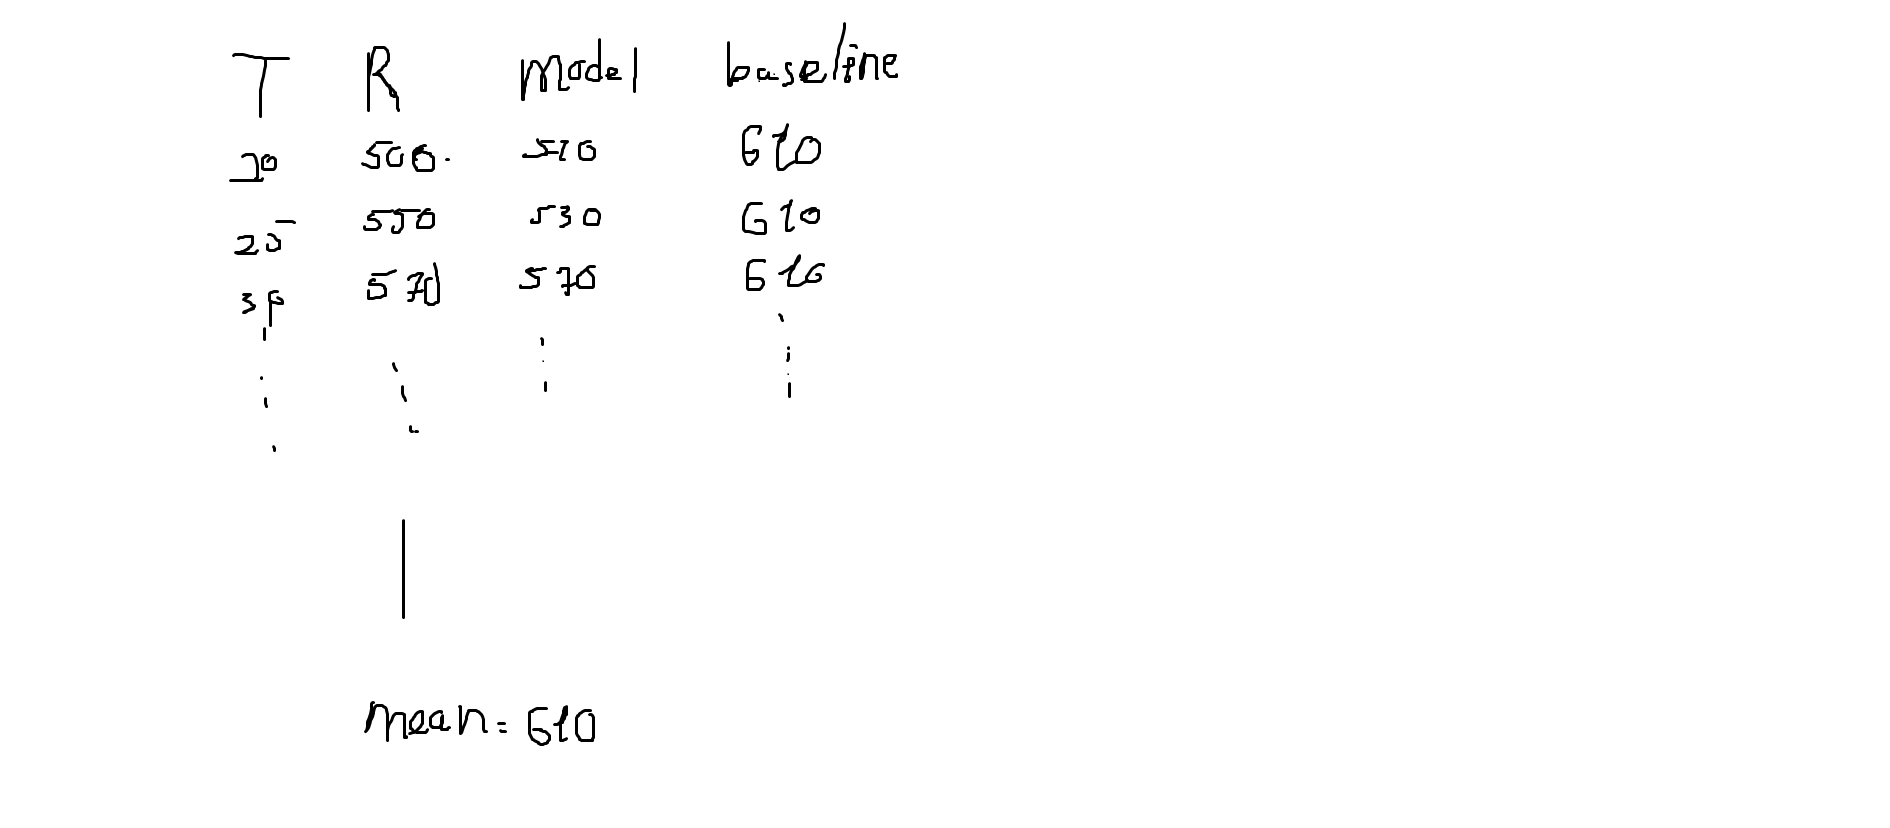 T R model baseline
20 500 510 610
25 550 530 610
30 570 570 610
mean = 610